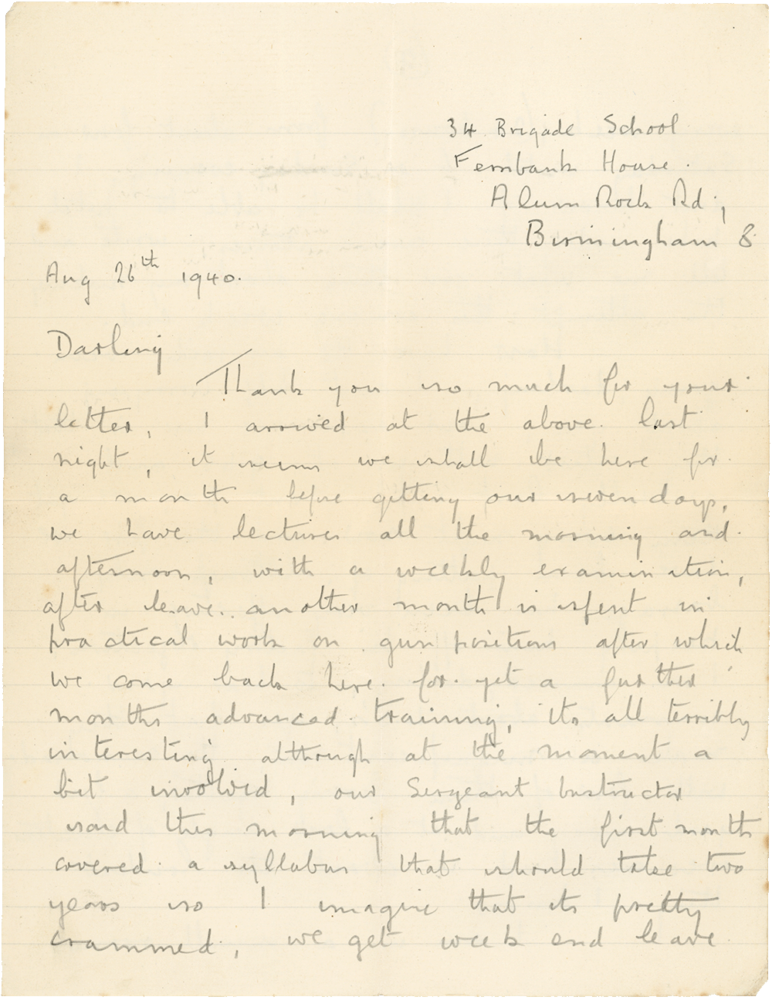 34 Brigade School
Fernbank House.
Alum Rock Rd.,
Birmingham 8
Aug 26th 1940.
Darling
Thank you so much for your
letter, I arrived at the above last
night, it seems we shall be here for
a month before getting our seven days,
we have lectures all the morning and
afternoon, with a weekly examination,
after leave another month is spent in
practical work on gun positions after which
we come back here for yet a further
months advanced training, its all terribly
interesting although at the moment a
bit involved, our Sergeant Instructor
said this morning that the first month
covered a syllabus that should take two
years so I imagine that its pretty
crammed, we get week end leave